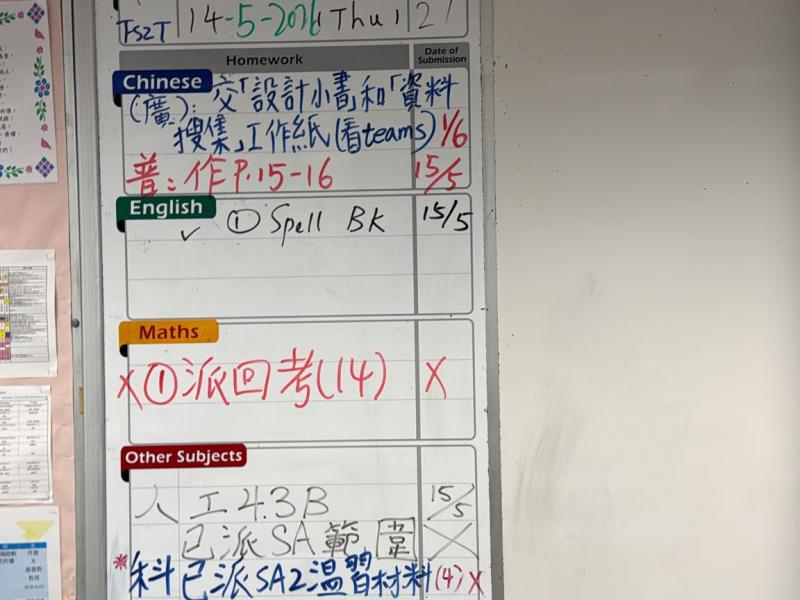 14-5-2026 Thu
Homework
Date of Submission
Chinese
(廣): 交「設計小書」和「資料
搜集」工作紙(看teams) 1/6
普: 作 P.15-16 15/5
English
✓ ① Spell BK 15/5
Maths
X ① 派回考(14) X
Other Subjects
人 工4.3B 15/5
已派SA範圍 X
* 科 已派SA2溫習材料(4) X